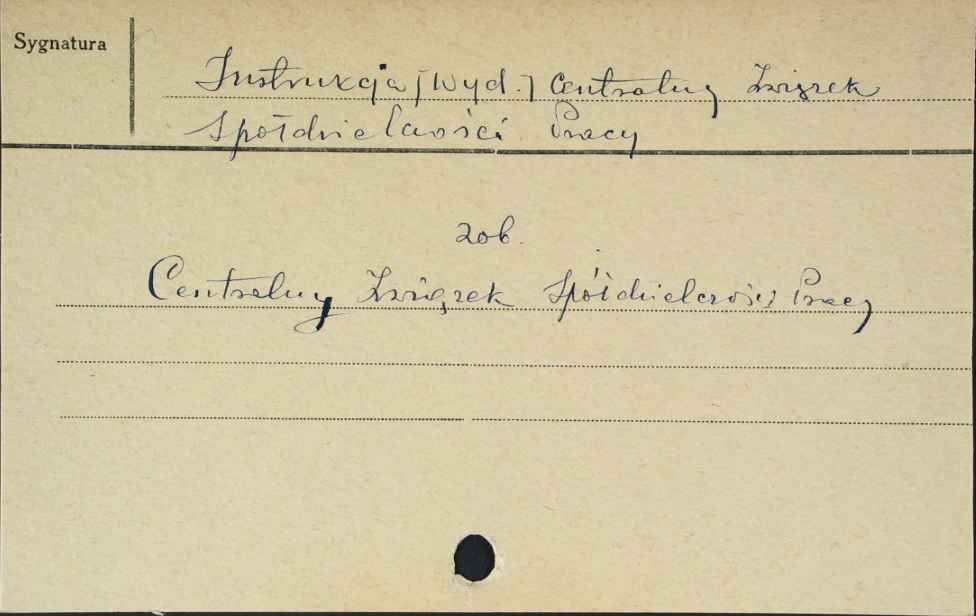 Sygnatura
Instrukcja [Wyd.] Centralny Związek
Spółdzielczości Pracy
zob.
Centralny Związek Spółdzielczości Pracy